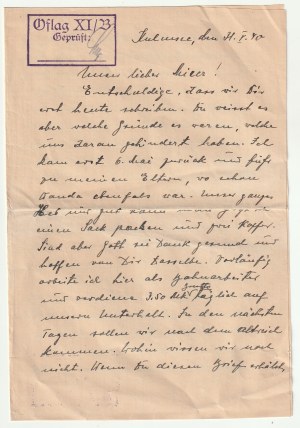 Oflag XI/23
Geprüft:
Kulmsee, den 31.V.40
Unser lieber
Entschuldige, dass wir Dir
erst heute schreiben. Du weisst es
aber welche Gründe es waren, welche
uns daran gehindert haben. Ich
kam erst 6. Mai zurück und fuhr
zu meinen Eltern, wo schon
Wanda ebenfalls war. Unser ganzes
einen Sack packen und zwei Koffer.
Sind aber Gott sei Dank gesund und
hoffen von Dir dasselbe. Vorläufig
arbeite ich hier als Bahnarbeiter
und verdiene 3.50 täglich auf
unsern Unterhalt. In den nächsten
Tagen sollen wir nach dem Altreich
kommen. Wohin wissen wir noch
nicht. Wenn Du diesen Brief erhälst